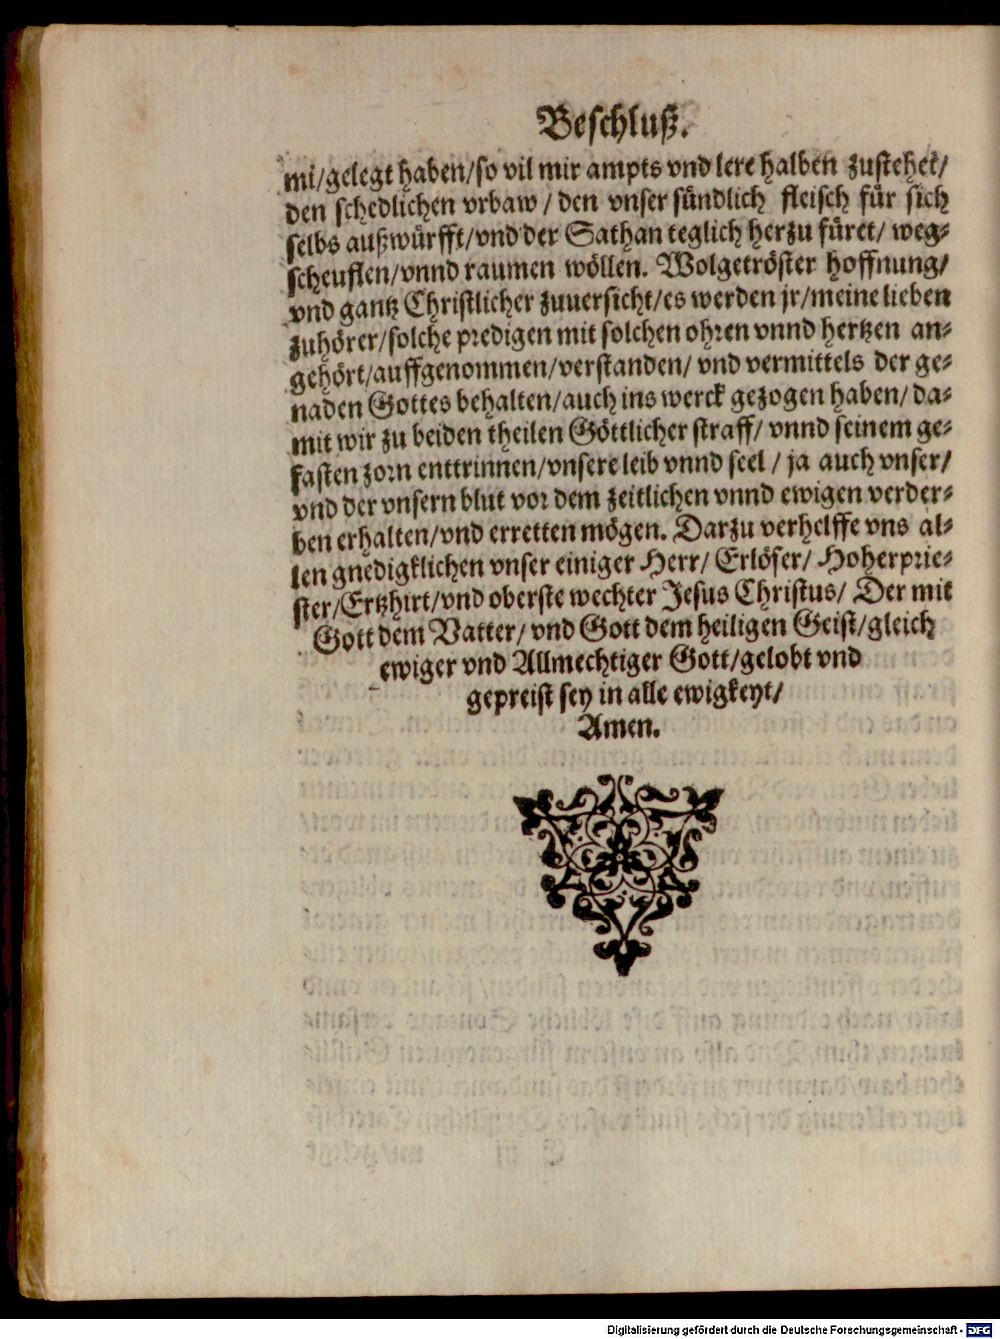 Beschluß.
mi/gelegt haben/so vil mir ampts vnd lere halben zustehet/
den schedlichen vrbaw/ den vnser sündlich fleisch für sich
selbs außwürfft/vnd der Sathan teglich herzu füret/ weg-
scheuflen/vnnd raumen wöllen. Wolgetröster hoffnung/
vnd gantz Christlicher zuuersicht/es werden jr/meine lieben
zuhörer/solche predigen mit solchen ohren vnnd hertzen an-
gehört/auffgenommen/verstanden/ vnd vermittels der ge-
naden Gottes behalten/auch ins werck gezogen haben/ da-
mit wir zu beiden theilen Göttlicher straff/ vnnd seinem ge-
fasten zorn enttrinnen/vnsere leib vnnd seel/ ja auch vnser/
vnd der vnsern blut vor dem zeitlichen vnnd ewigen verder-
ben erhalten/vnd erretten mögen. Darzu verhelffe vns al-
len gnedigklichen vnser einiger Herr/ Erlöser/ Hoherprie-
ster/Ertzhirt/vnd oberste wechter Jesus Christus/ Der mit
Gott dem Vatter/ vnd Gott dem heiligen Geist/gleich
ewiger vnd Allmechtiger Gott/gelobt vnd
gepreist sey in alle ewigkeyt/
Amen.
Digitalisierung gefördert durch die Deutsche Forschungsgemeinschaft - DFG